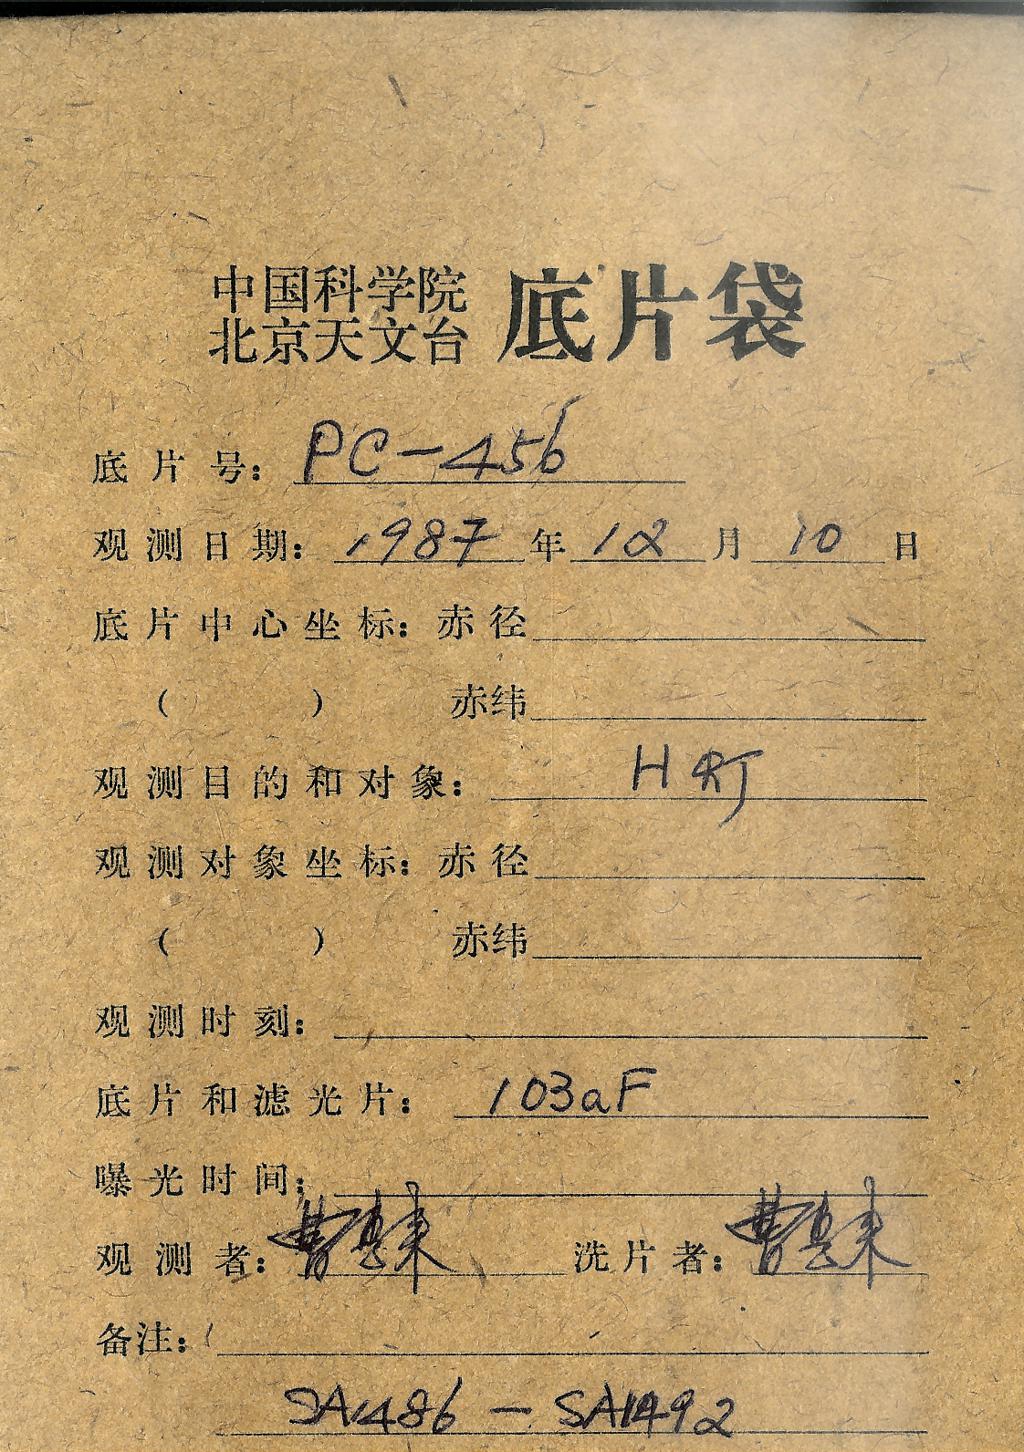 中国科学院
北京天文台 底片袋
底片号: PC-456
观测日期: 1987年 12月 10日
底片中心坐标: 赤径
( ) 赤纬
观测目的和对象: H
观测对象坐标: 赤径
( ) 赤纬
观测时刻:
底片和滤光片: 103aF
曝光时间:
观测者: 曹 洗片者: 曹
备注:
SA1486 - SA1492